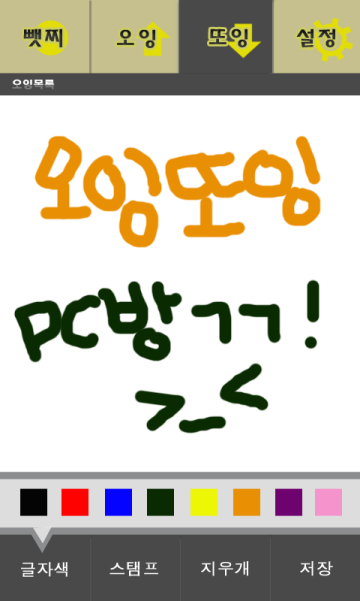 뺏찌 오잉 또잉 설정
오잉목록
모임또잉
PC방ㄱㄱ!
>_<
글자색 스탬프 지우개 저장